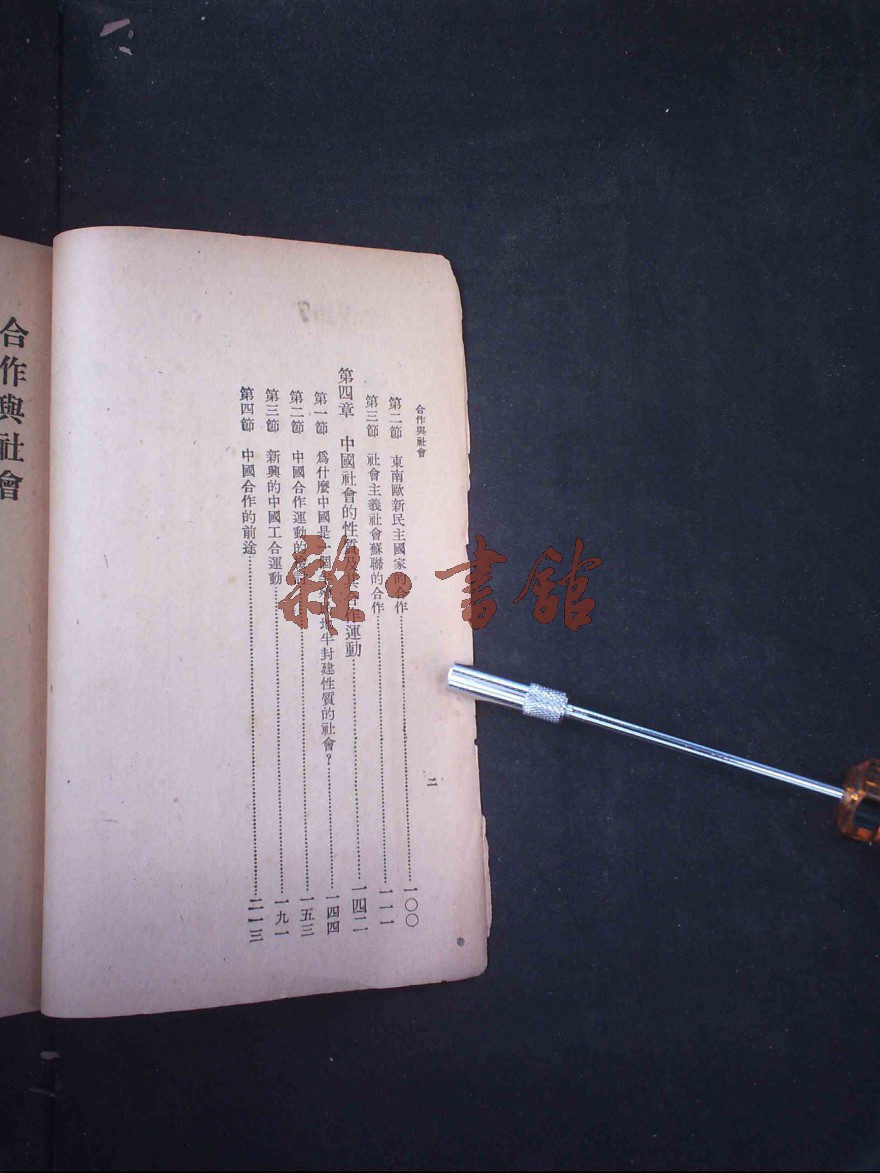 合作與社會
二
第二節 東南歐新民主國家的合作 一〇〇
第三節 社會主義社會蘇聯的合作 一一一
第四章 中國社會的性質及其合作運動 一四二
第一節 爲什麼中國是一個半封建性質的社會？ 一四四
第二節 中國合作運動的 一五三
第三節 新興的中國工合運動 一九一
第四節 中國合作的前途 二一三
合作與社會
雜·書館